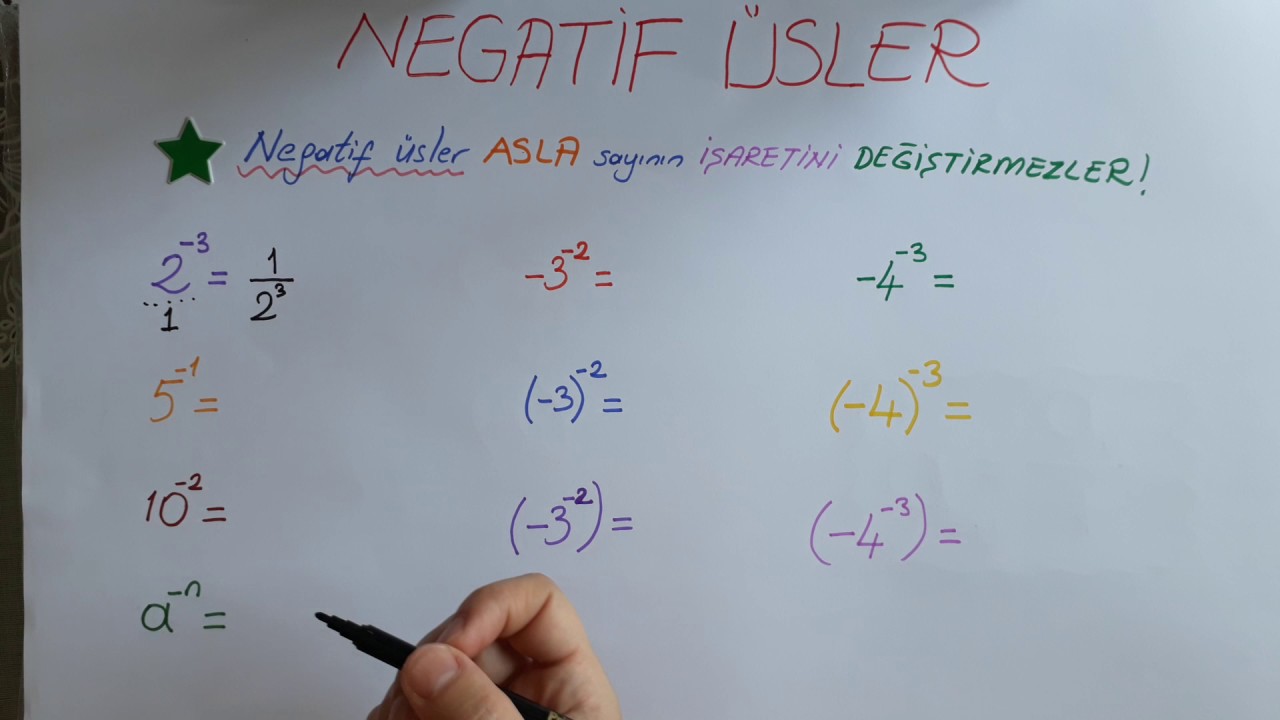 NEGATİF ÜSLER
Negatif üsler ASLA sayının İŞARETİNİ DEĞİŞTİRMEZLER!
2⁻³ = 1/2³
1
-3⁻² =
-4⁻³ =
5⁻¹ =
(-3)⁻² =
(-4)⁻³ =
10⁻² =
(-3⁻²) =
(-4⁻³) =
a⁻ⁿ =